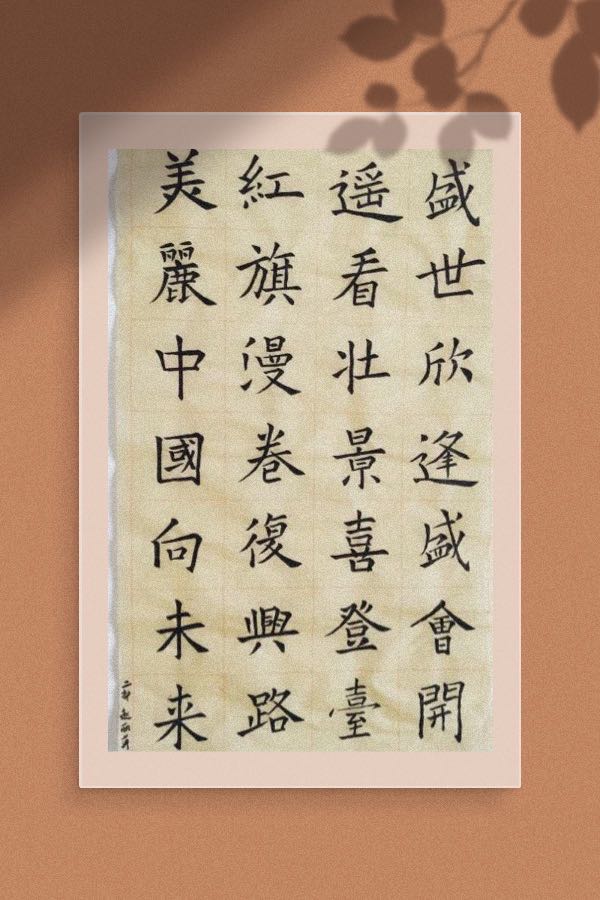 盛世欣逢盛會開
遥看壮景喜登臺
紅旗漫卷復興路
美麗中國向未来